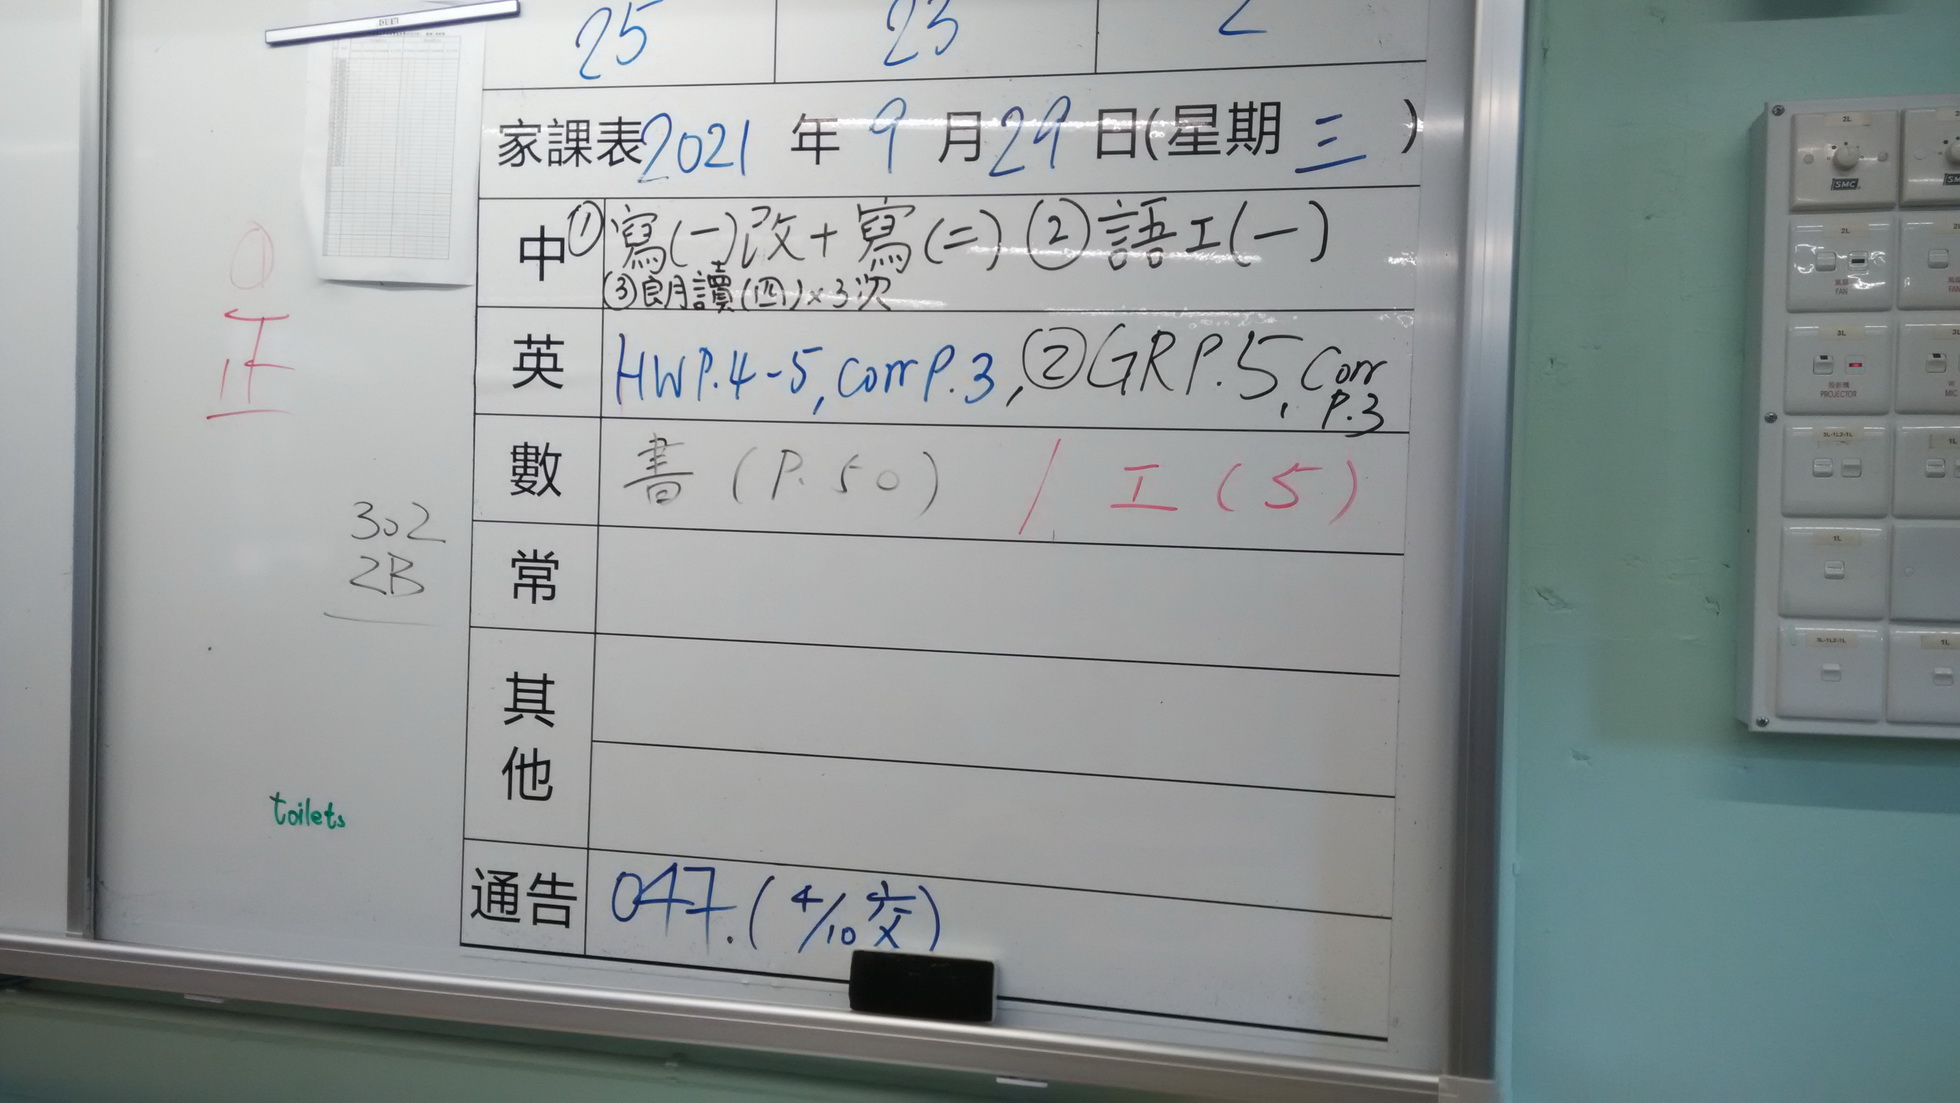 25 23 2
家課表 2021 年 9 月 29 日(星期 三 )
中 ① 寫(一)改+寫(二) ② 語工(一)
③朗讀(四)×3次
英 HW P.4-5, corr P.3, ② GR P.5, Corr P.3
數 書 (P.50) / 工 (5)
常
其他
通告 047. (4/10交)
正
302
2B
toilets
SMC
2L
FAN
3L
PROJECTOR
MIC
1L
1L
1L